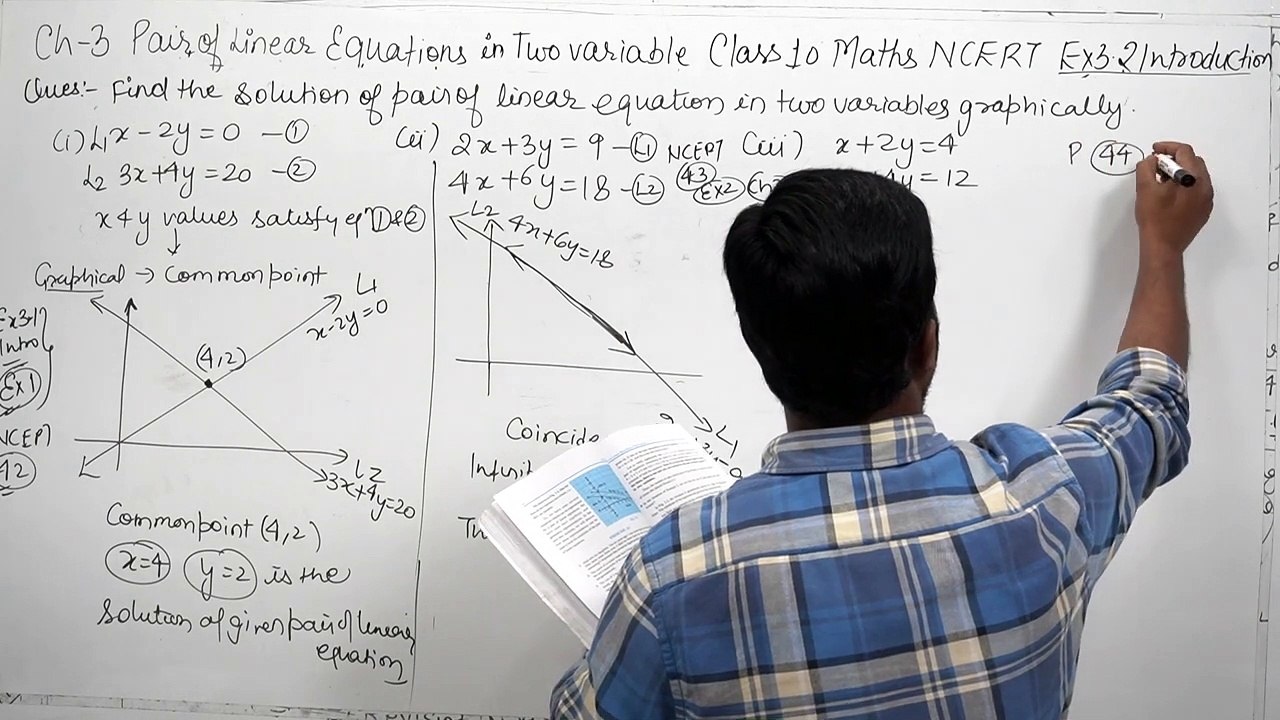 Ch-3 Pair of Linear Equations in Two variable Class 10 Maths NCERT Ex3.2 Introduction
Ques:- Find the solution of pair of linear equation in two variables graphically.
(i) L1 x - 2y = 0 - ①
L2 3x + 4y = 20 - ②
x & y values satisfy eqn ① & ②
Graphical → Common point
L1
x - 2y = 0
(4,2)
L2
3x+4y=20
Common point (4,2)
x=4 y=2 is the
solution of given pair of linear
equation
Ex3.1
Intro
Ex1
NCERT
42
(ii) 2x + 3y = 9 - L1 NCERT
4x + 6y = 18 - L2 43 Ex2
L2
4x+6y=18
L1
(iii) x + 2y = 4
4y = 12
P 44